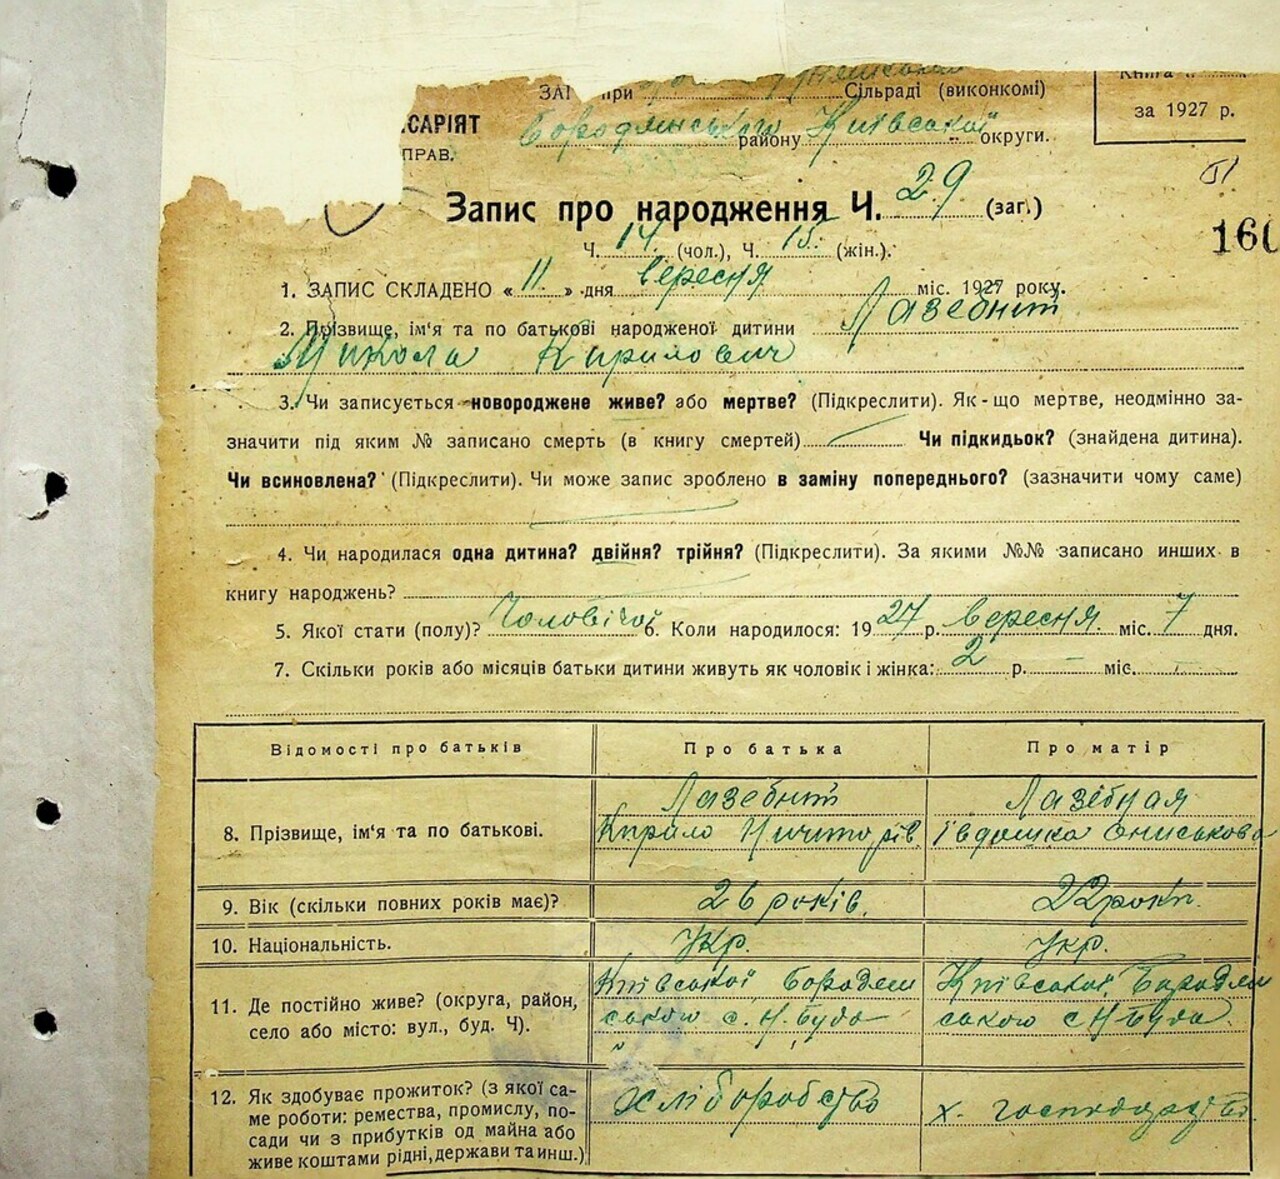 Книга
ЗАГ при Сільраді (виконкомі)
за 1927 р.
САРІЯТ
Бородянського району Київської округи.
ПРАВ.
Запис про народження Ч. 29 (заг.)
160
Ч. 14 (чол.), Ч. 15 (жін.).
1. ЗАПИС СКЛАДЕНО « 11 » дня вересня міс. 1927 року.
2. Прізвище, ім'я та по батькові народженої дитини Лазебний
Микола Кирилович
3. Чи записується новороджене живе? або мертве? (Підкреслити). Як-що мертве, неодмінно за-
значити під яким № записано смерть (в книгу смертей) Чи підкидьок? (знайдена дитина).
Чи всиновлена? (Підкреслити). Чи може запис зроблено в заміну попереднього? (зазначити чому саме)
4. Чи народилася одна дитина? двійня? трійня? (Підкреслити). За якими №№ записано инших в
книгу народжень?
5. Якої стати (полу)? Чоловічої 6. Коли народилося: 1927 р. вересня міс. 7 дня.
7. Скільки років або місяців батьки дитини живуть як чоловік і жінка: 2 р. — міс. —
Відомості про батьків Про батька Про матір
8. Прізвище, ім'я та по батькові.
Лазебний
Кирило
Лазебная
9. Вік (скільки повних років має)? 26 років. 22 роки.
10. Національність. Укр. Укр.
11. Де постійно живе? (округа, район,
село або місто: вул., буд. Ч).
Київської Бородян
ського с. Н. Буда
Київської Бородян
ського с Н-Буда
12. Як здобуває прожиток? (з якої са-
ме роботи: ремества, промислу, по-
сади чи з прибутків од майна або
живе коштами рідні, держави та инш.)
хліборобство
х. господарство